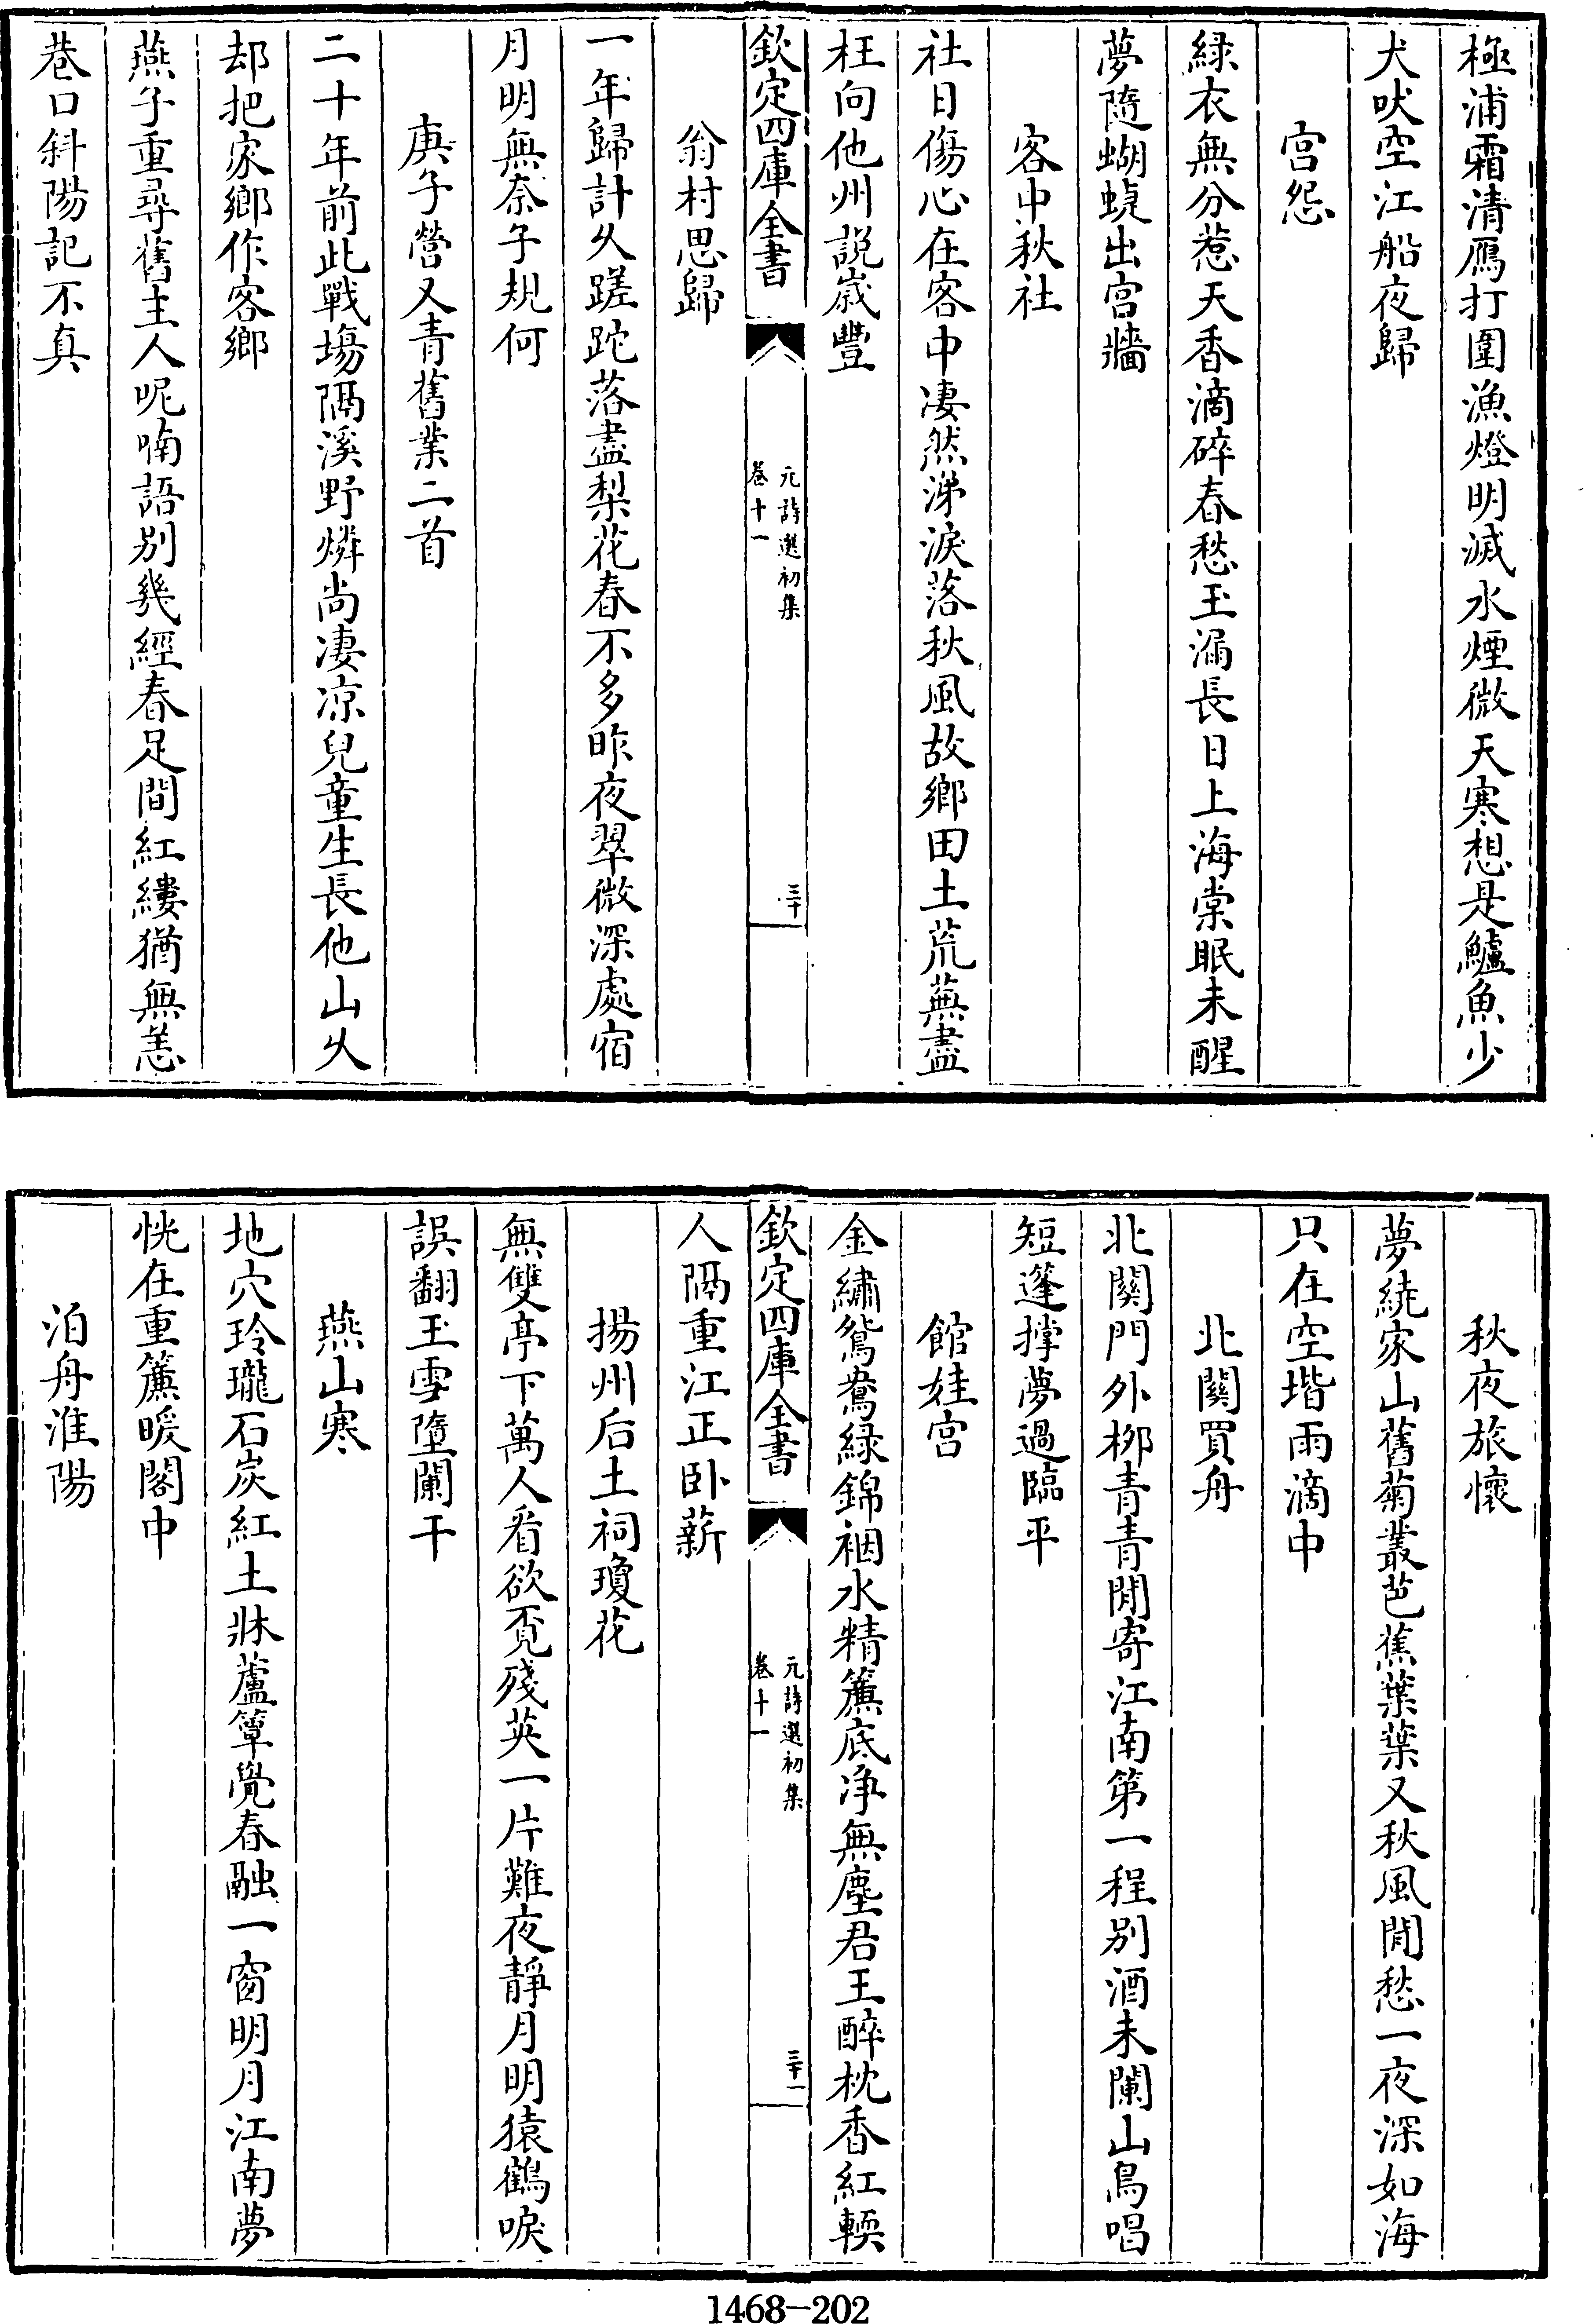 極浦霜清鴈打圍漁燈明滅水煙微天寒想是鱸魚少
犬吠空江船夜歸
宮怨
緑衣無分惹天香滴碎春愁玉漏長日上海棠眠未醒
夢隨蝴蜨出宮牆
客中秋社
社日傷心在客中凄然涕淚落秋風故鄉田土荒蕪盡
枉向他州説嵗豐
欽定四庫全書
元詩選初集
卷十一
三十
翁村思歸
一年歸計久蹉跎落盡梨花春不多昨夜翠微深處宿
月明無奈子規何
庚子營又青舊業二首
二十年前此戰塲隔溪野燐尚凄凉兒童生長他山久
却把家鄉作客鄉
燕子重尋舊主人呢喃語别幾經春足間紅縷猶無恙
巷口斜陽記不真
秋夜旅懷
夢繞家山舊菊叢芭蕉葉葉又秋風閒愁一夜深如海
只在空堦雨滴中
北關買舟
北關門外柳青青閒寄江南第一程别酒未闌山鳥唱
短篷撑夢過臨平
館娃宮
金繡鴛鴦緑錦裀水精簾底净無塵君王醉枕香紅輭
欽定四庫全書
元詩選初集
卷十一
三十一
人隔重江正卧薪
揚州后土祠瓊花
無雙亭下萬人看欲覓殘英一片難夜靜月明猿鶴唳
誤翻玉雪墮闌干
燕山寒
地穴玲瓏石炭紅土牀蘆簟覺春融一窗明月江南夢
恍在重簾暖閣中
泊舟淮陽
1468—202